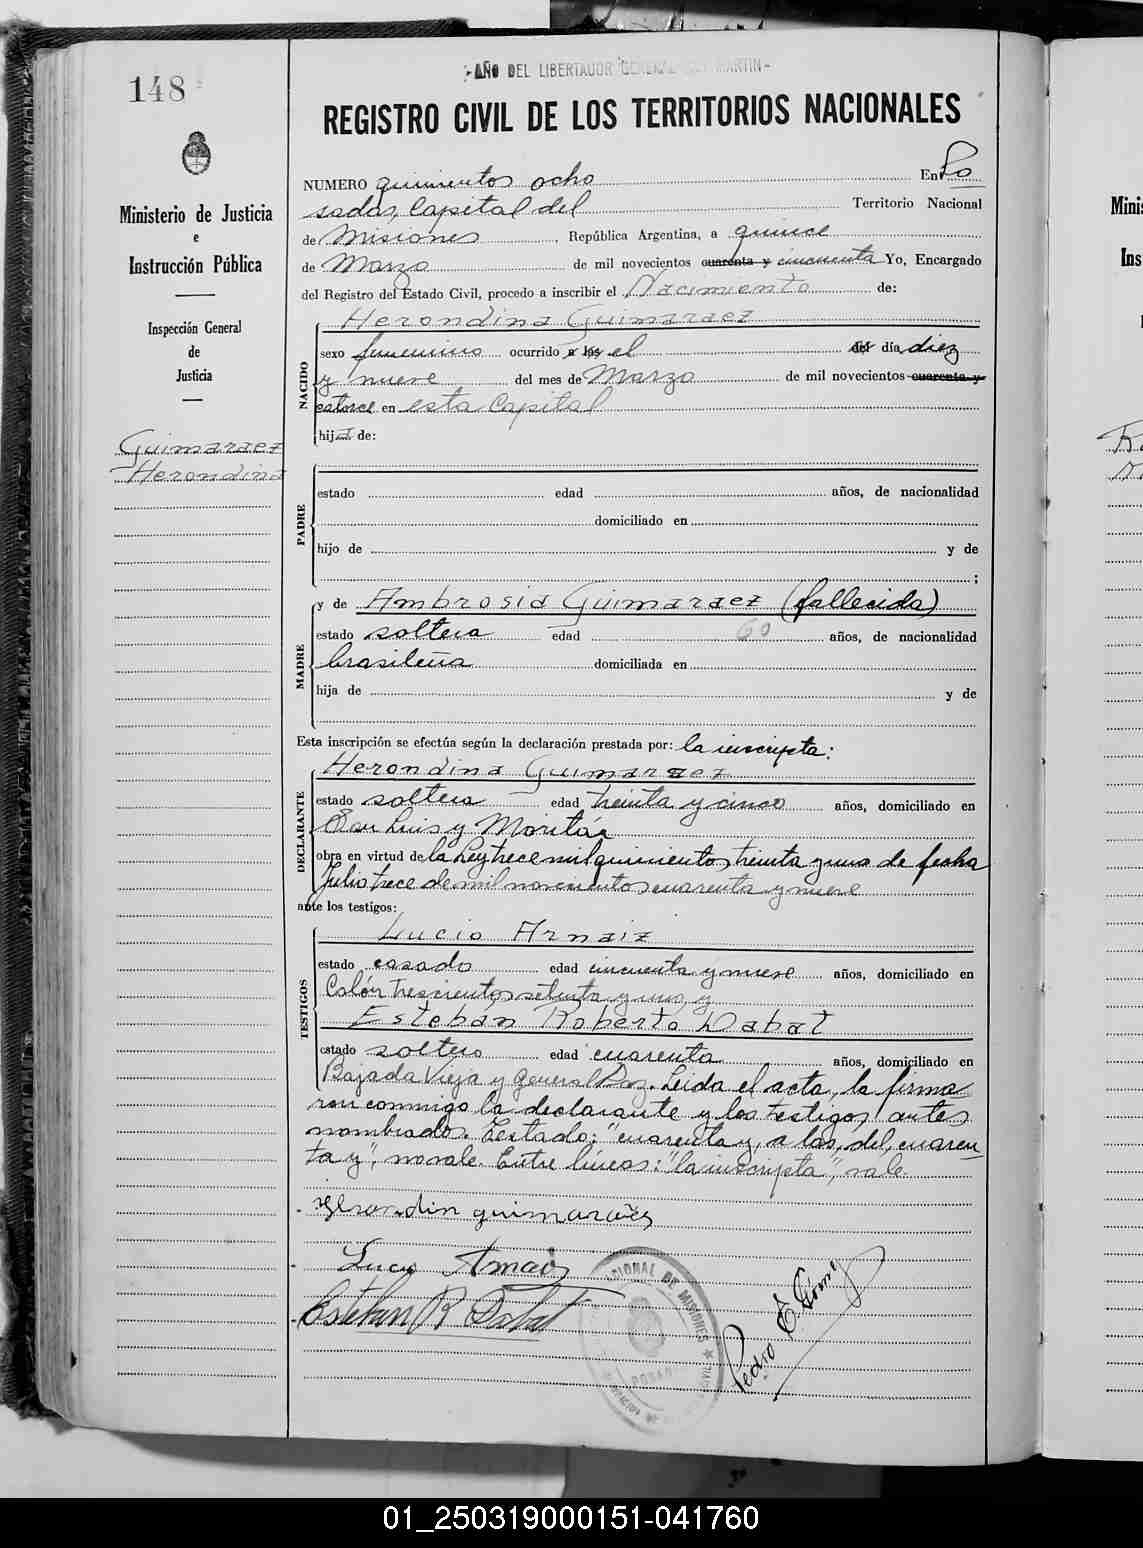 148
- AÑO DEL LIBERTADOR GENERAL SAN MARTIN -
REGISTRO CIVIL DE LOS TERRITORIOS NACIONALES
Ministerio de Justicia
e
Instrucción Pública
Inspección General
de
Justicia
Guimaraez
Herondina
NUMERO quinientos ocho En Po
sadas, Capital del Territorio Nacional
de Misiones, República Argentina, a quince
de Marzo de mil novecientos cuarenta y cincuenta Yo, Encargado
del Registro del Estado Civil, procedo a inscribir el Nacimiento de:
NACIDO
Herondina Guimaraez
sexo femenino ocurrido a las el del día diez
y nueve del mes de Marzo de mil novecientos cuarenta y
catorce en esta Capital
hija de:
PADRE
estado edad años, de nacionalidad
domiciliado en
hijo de y de
;
MADRE
y de Ambrosia Guimaraez (fallecida)
estado soltera edad 60 años, de nacionalidad
brasileña domiciliada en
hija de y de
Esta inscripción se efectúa según la declaración prestada por: la inscripta:
DECLARANTE
Herondina Guimaraez
estado soltera edad treinta y cinco años, domiciliado en
San Luis y Moritán
obra en virtud de la Ley trece mil quinientos treinta y uno de fecha
Julio trece de mil novecientos cuarenta y nueve
ante los testigos:
TESTIGOS
Lucio Arnaiz
estado casado edad cincuenta y nueve años, domiciliado en
Colón trescientos setenta y uno, y
Esteban Roberto Dabat
estado soltero edad cuarenta años, domiciliado en
Bajada Vieja y General Paz. Leida el acta, la firma
ron conmigo la declarante y los testigos antes
nombrados. Testado: "cuarenta y, a las, del, cuaren
ta y", no vale. Entre líneas: "la inscripta", vale.
Herondin guimaraes
Lucio Arnaiz
Esteban R Dabat
Pedro E. Gómez
01_250319000151-041760